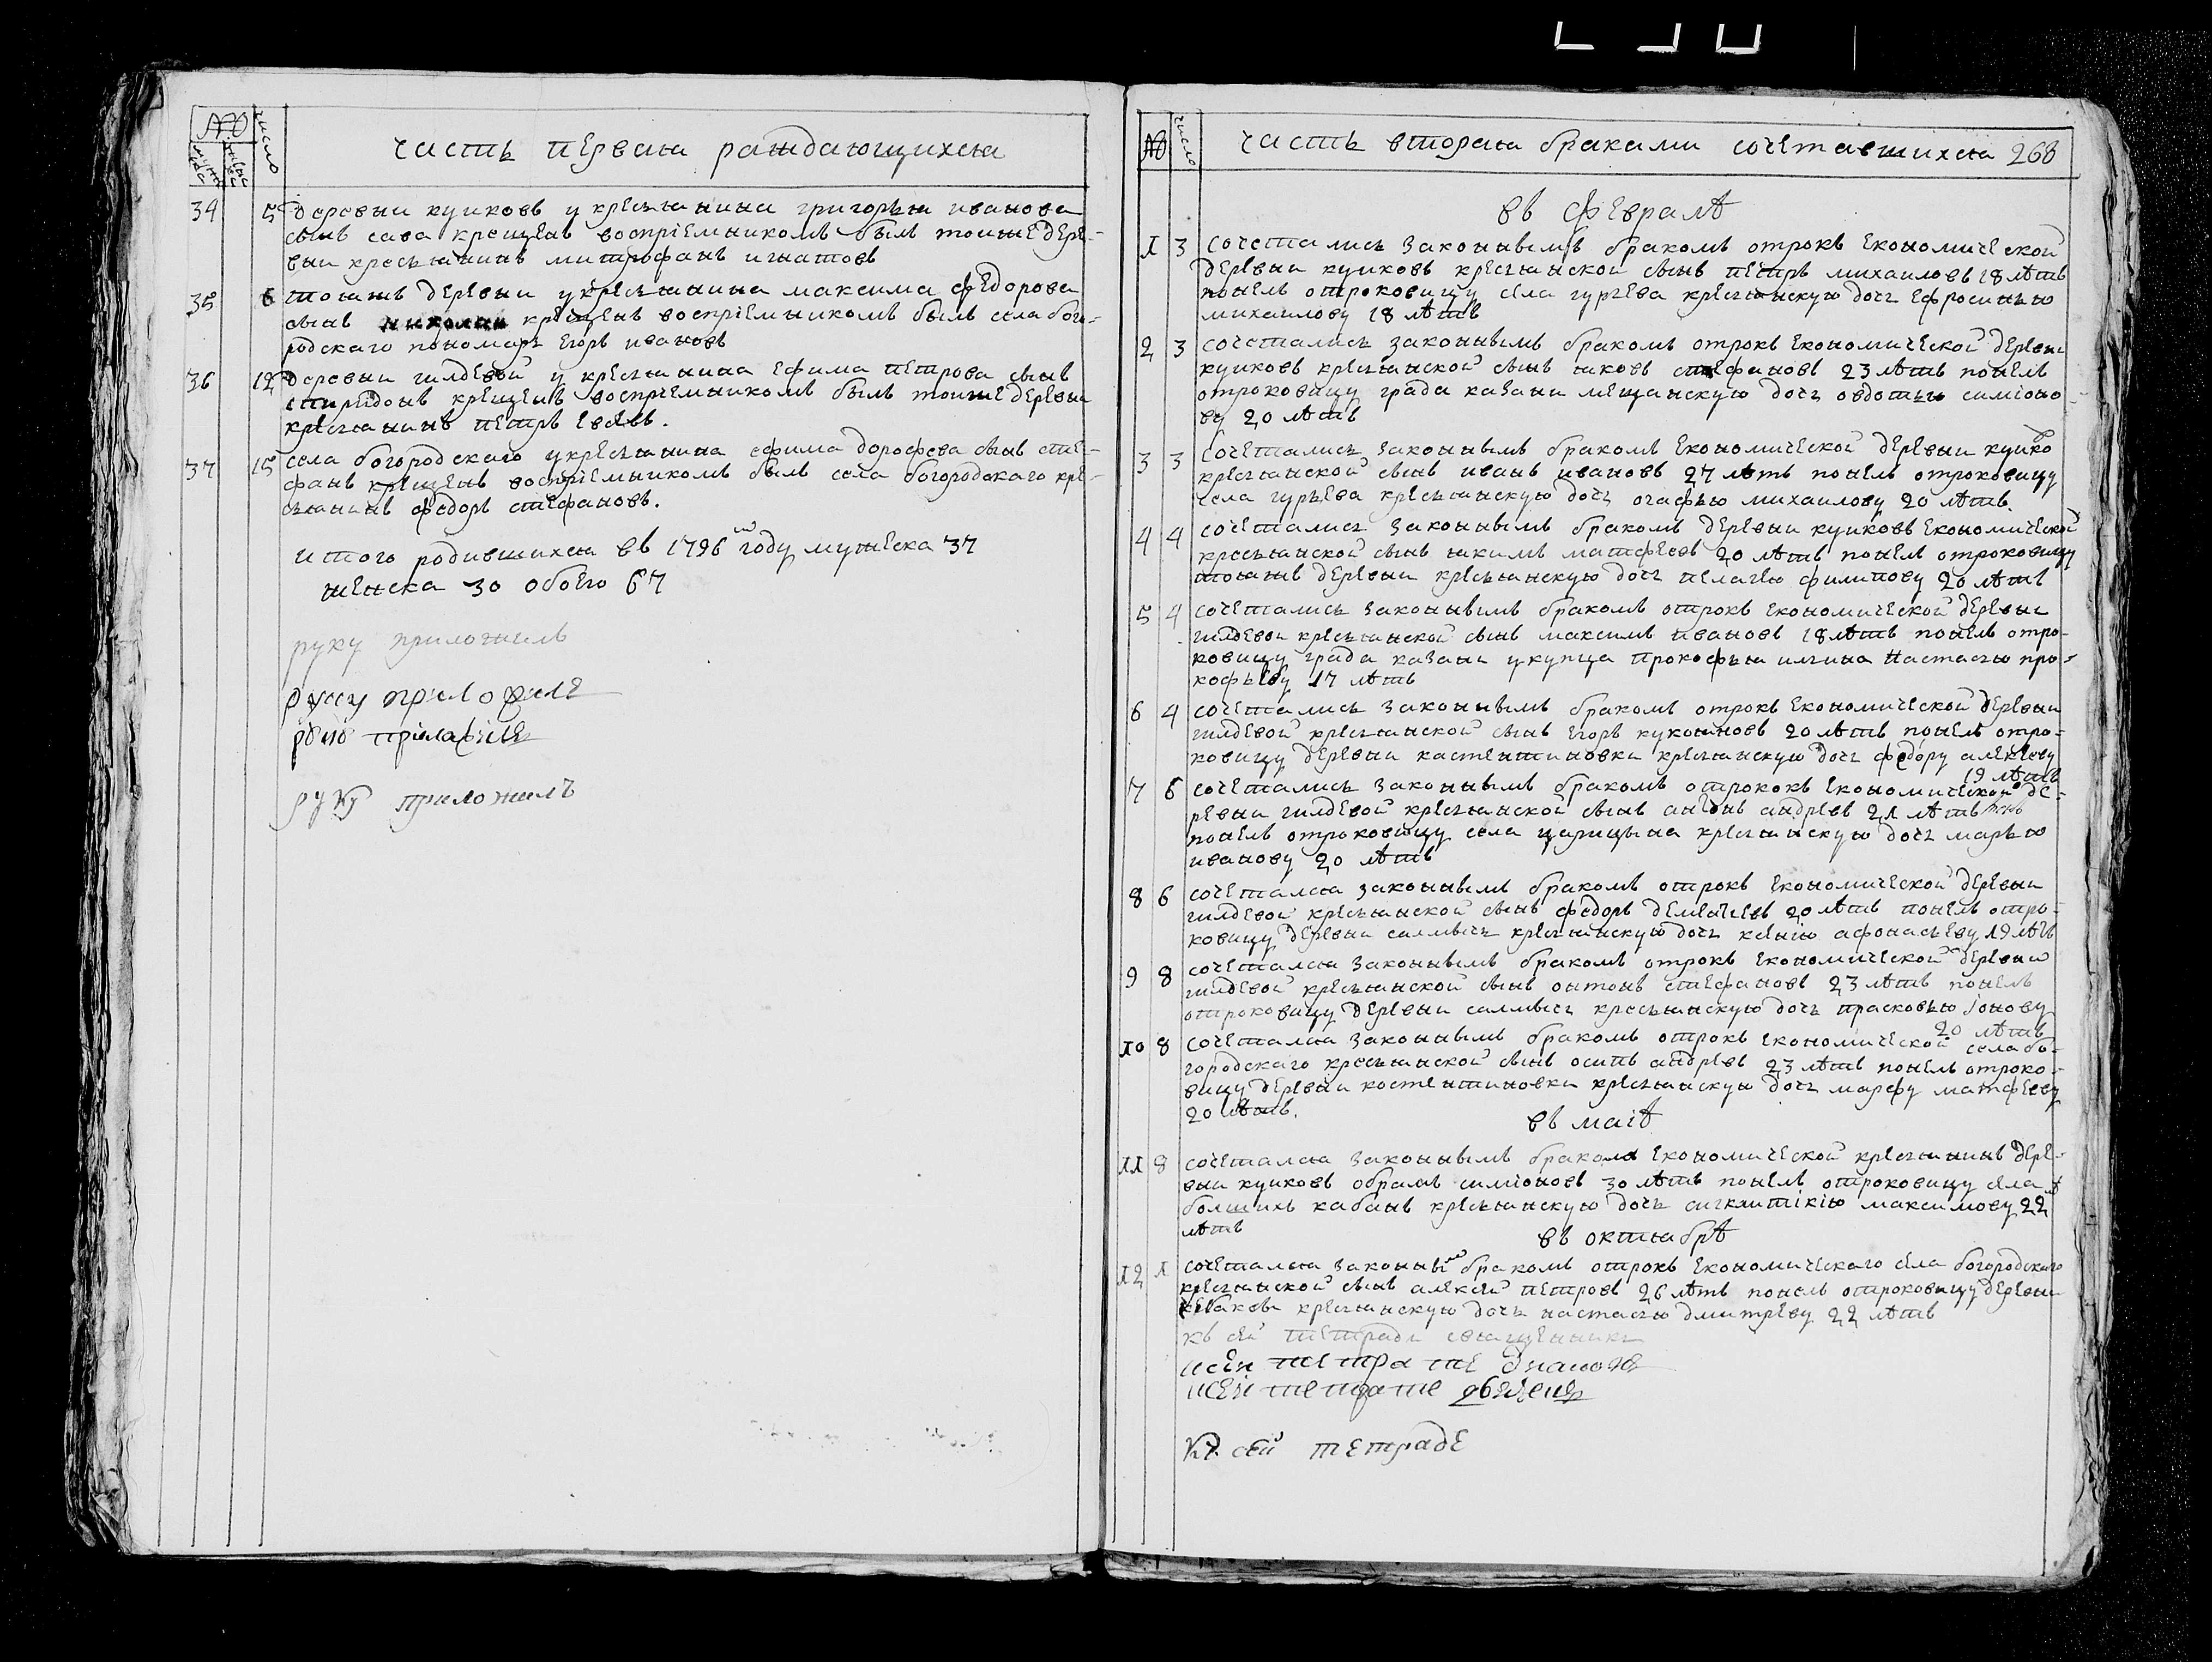 №
мужеска
женска
число
часть первая раждающихся
34 5 деревни куюковъ у крестьянина григорья иванова
сынъ сава крещенъ воспріемникомъ былъ тоиже дере-
вни крестьянинъ митрофанъ игнатовъ
35 6 тояжъ деревни у крестьянина максима федорова
сынъ николаи крещенъ воспріемникомъ былъ села бого-
родскаго пономарь егоръ ивановъ
36 12 деревни гилдевой у крестьянина ефима петрова сынъ
спиридонъ крещенъ воспріемникомъ былъ тоиже деревни
крестьянинъ петръ
37 15 села богородскаго у крестьянина ефима дорофева сынъ сте-
фанъ крещенъ воспріемникомъ былъ села богородскаго кре-
стьянинъ федоръ стефановъ.
итого родившихся въ 1796м году мужеска 37
женска 30 обоего 67
руку приложилъ
руку приложилъ
руку приложилъ
руку приложилъ
№
число
часть вторая браками сочетавшихся 268
въ февралѣ
1 3 сочетались законнымъ бракомъ отрокъ економической
деревни куюковъ крестьянской сынъ петръ михаиловъ 18 лѣтъ
понелъ отроковицу села гурьева крестьянскую дочь ефросинью
михаилову 18 лѣтъ
2 3 сочетались законнымъ бракомъ отрокъ економической деревни
куюковъ крестьянской сынъ яковъ стефановъ 23 лѣтъ понелъ
отроковицу града казани мещанскую дочь овдотью симіоно-
ву 20 лѣтъ
3 3 сочетались законнымъ бракомъ економической деревни куюко
крестьянской сынъ иванъ ивановъ 27 лѣтъ понелъ отроковицу
села гурьева крестьянскую дочь огафью михаилову 20 лѣтъ.
4 4 сочетались законнымъ бракомъ деревни куюковъ економической
крестьянской сынъ якимъ матфеевъ 20 лѣтъ понелъ отроковицу
тояжъ деревни крестьянскую дочь пелагею филипову 20 лѣтъ
5 4 сочетались законнымъ бракомъ отрокъ економической деревни
гилдевои крестьянской сынъ максимъ ивановъ 18 лѣтъ понелъ отро-
ковицу града казани у купца прокофья илина настасью про-
кофьеву 17 лѣтъ
6 4 сочетались законнымъ бракомъ отрокъ економической деревни
гилдевой крестьянской сынъ егоръ 20 лѣтъ понелъ отро-
ковицу деревни кастентиновки крестьянскую дочь федору алексеву
19 лѣтъ
7 6 сочетались законнымъ бракомъ отрококъ економической де-
ревни гилдевой крестьянской сынъ андревъ 21 лѣтъ
понелъ отроковицу села царицына крестьянскую дочь марью
иванову 20 лѣтъ
8 6 сочетался законнымъ бракомъ отрокъ економической деревни
гилдевои крестьянской сынъ федоръ 20 лѣтъ понелъ отро-
ковицу деревни салмысь крестьянскую дочь ксенію афонасьеву 19 лѣтъ
9 8 сочетался законнымъ бракомъ отрокъ економической деревни
гилдевой крестьянской сынъ онтонъ стефановъ 23 лѣтъ понелъ
отроковицу деревни салмысь крестьянскую дочь прасковью іонову
20 лѣтъ
10 8 сочетался законнымъ бракомъ отрокъ економической села бо-
городскаго крестьянской сынъ осипъ андревъ 23 лѣтъ понелъ отроко-
вицу деревни костентиновки крестьянскую дочь марфу матфееву
20 лѣтъ.
въ маіѣ
11 8 сочетался законнымъ бракомъ економической крестьянинъ дере-
вни куюковъ обрамъ симіоновъ 30 лѣтъ понелъ отроковицу села
болшихъ кабанъ крестьянскую дочь сигклитікію максимову 22
лѣтъ
въ октябрѣ
12 1 сочетался законнымъ бракомъ отрокъ економическаго села богородскаго
крестьянской сынъ алексѣй петровъ 26 лѣтъ понелъ отроковицу деревни
крестьянскую дочь настасью дмитреву 22 лѣтъ
къ сей тетради священникъ
ксеи тетрате дьяконъ
ксеи тетрате
къ сей тетраде